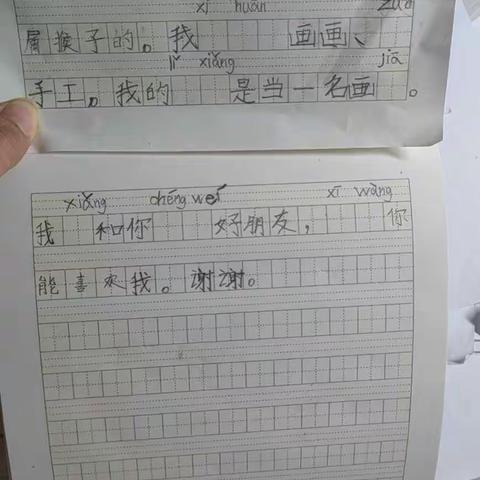 xǐ huān zuò
属猴子的。我 画画、
lǐ xiǎng jiā
手工。我的 是当一名画 。
xiǎng chéng wéi xī wàng
我 和你 好朋友, 你
能喜欢我。谢谢。